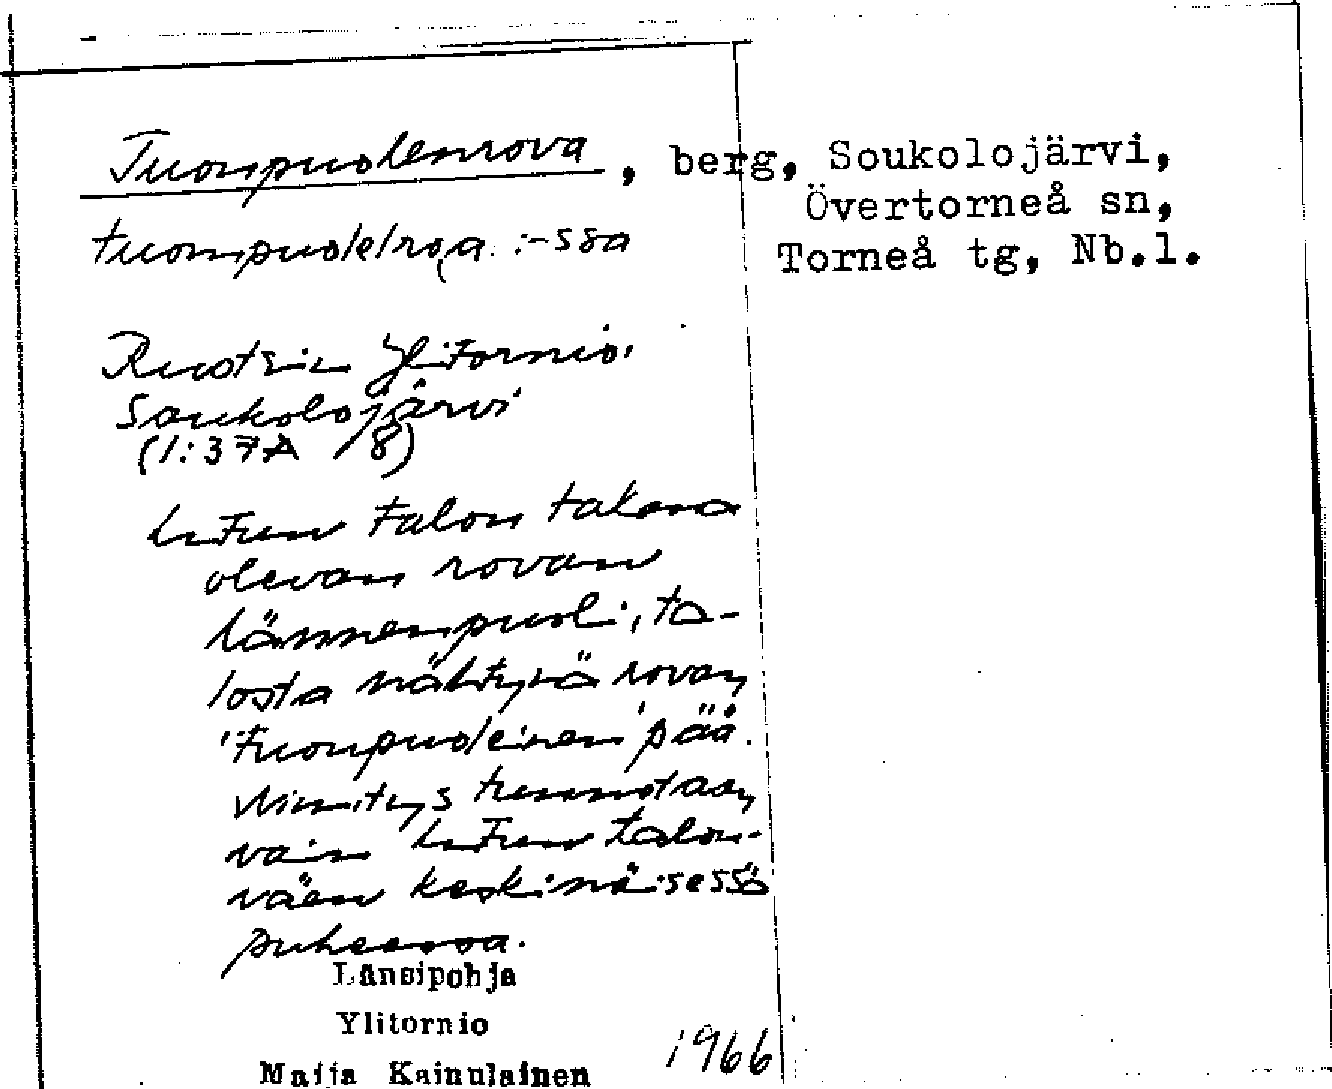 Tuonpuolenrova, berg, Soukolojärvi,
Övertorneå sn,
tuompuole/lro̮a :-ssa
Torneå tg, Nb.l.
Ruotsin Ylitornio.
Soukolojärvi
(1:37A /8)
talon takana
olevan rovan
lännenpuoli, ta-
losta nähtynä rovan
'tuonpuoleinen' pää.
Nimitys tunnetaan
vain talon-
väen keskinäisessä
puheessa.
Länsipohja
Ylitornio
Maija Kainulainen
1966